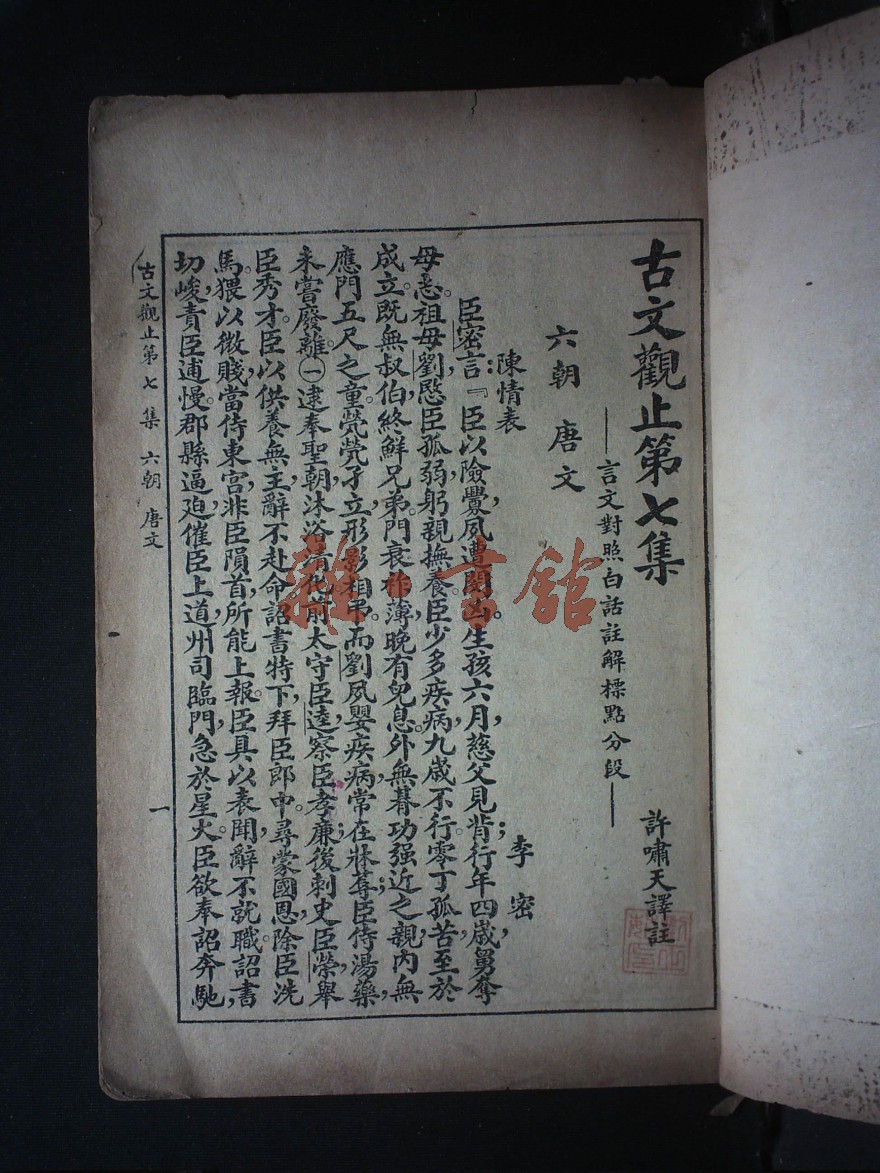 古文觀止第七集
——言文對照白話註解標點分段——
許嘯天譯註
六朝 唐文
陳情表
李密
臣密言：『臣以險釁，夙遭閔凶。生孩六月，慈父見背；行年四歲，舅奪
母志。祖母劉，愍臣孤弱，躬親撫養。臣少多疾病，九歲不行。零丁孤苦，至於
成立。既無叔伯，終鮮兄弟。門衰祚薄，晚有兒息。外無朞功强近之親，內無
應門五尺之童。煢煢孑立，形影相弔。而劉夙嬰疾病，常在牀蓐；臣侍湯藥，
未嘗廢離。㊀逮奉聖朝，沐浴清化。前太守臣逵，察臣孝廉；後刺史臣榮，舉
臣秀才。臣以供養無主，辭不赴命。詔書特下，拜臣郎中。尋蒙國恩，除臣洗
馬。猥以微賤，當侍東宮，非臣隕首，所能上報。臣具以表聞，辭不就職。詔書
切峻，責臣逋慢。郡縣逼迫，催臣上道，州司臨門，急於星火。臣欲奉詔奔馳，
古文觀止第七集 六朝 唐文
一
雜·書館